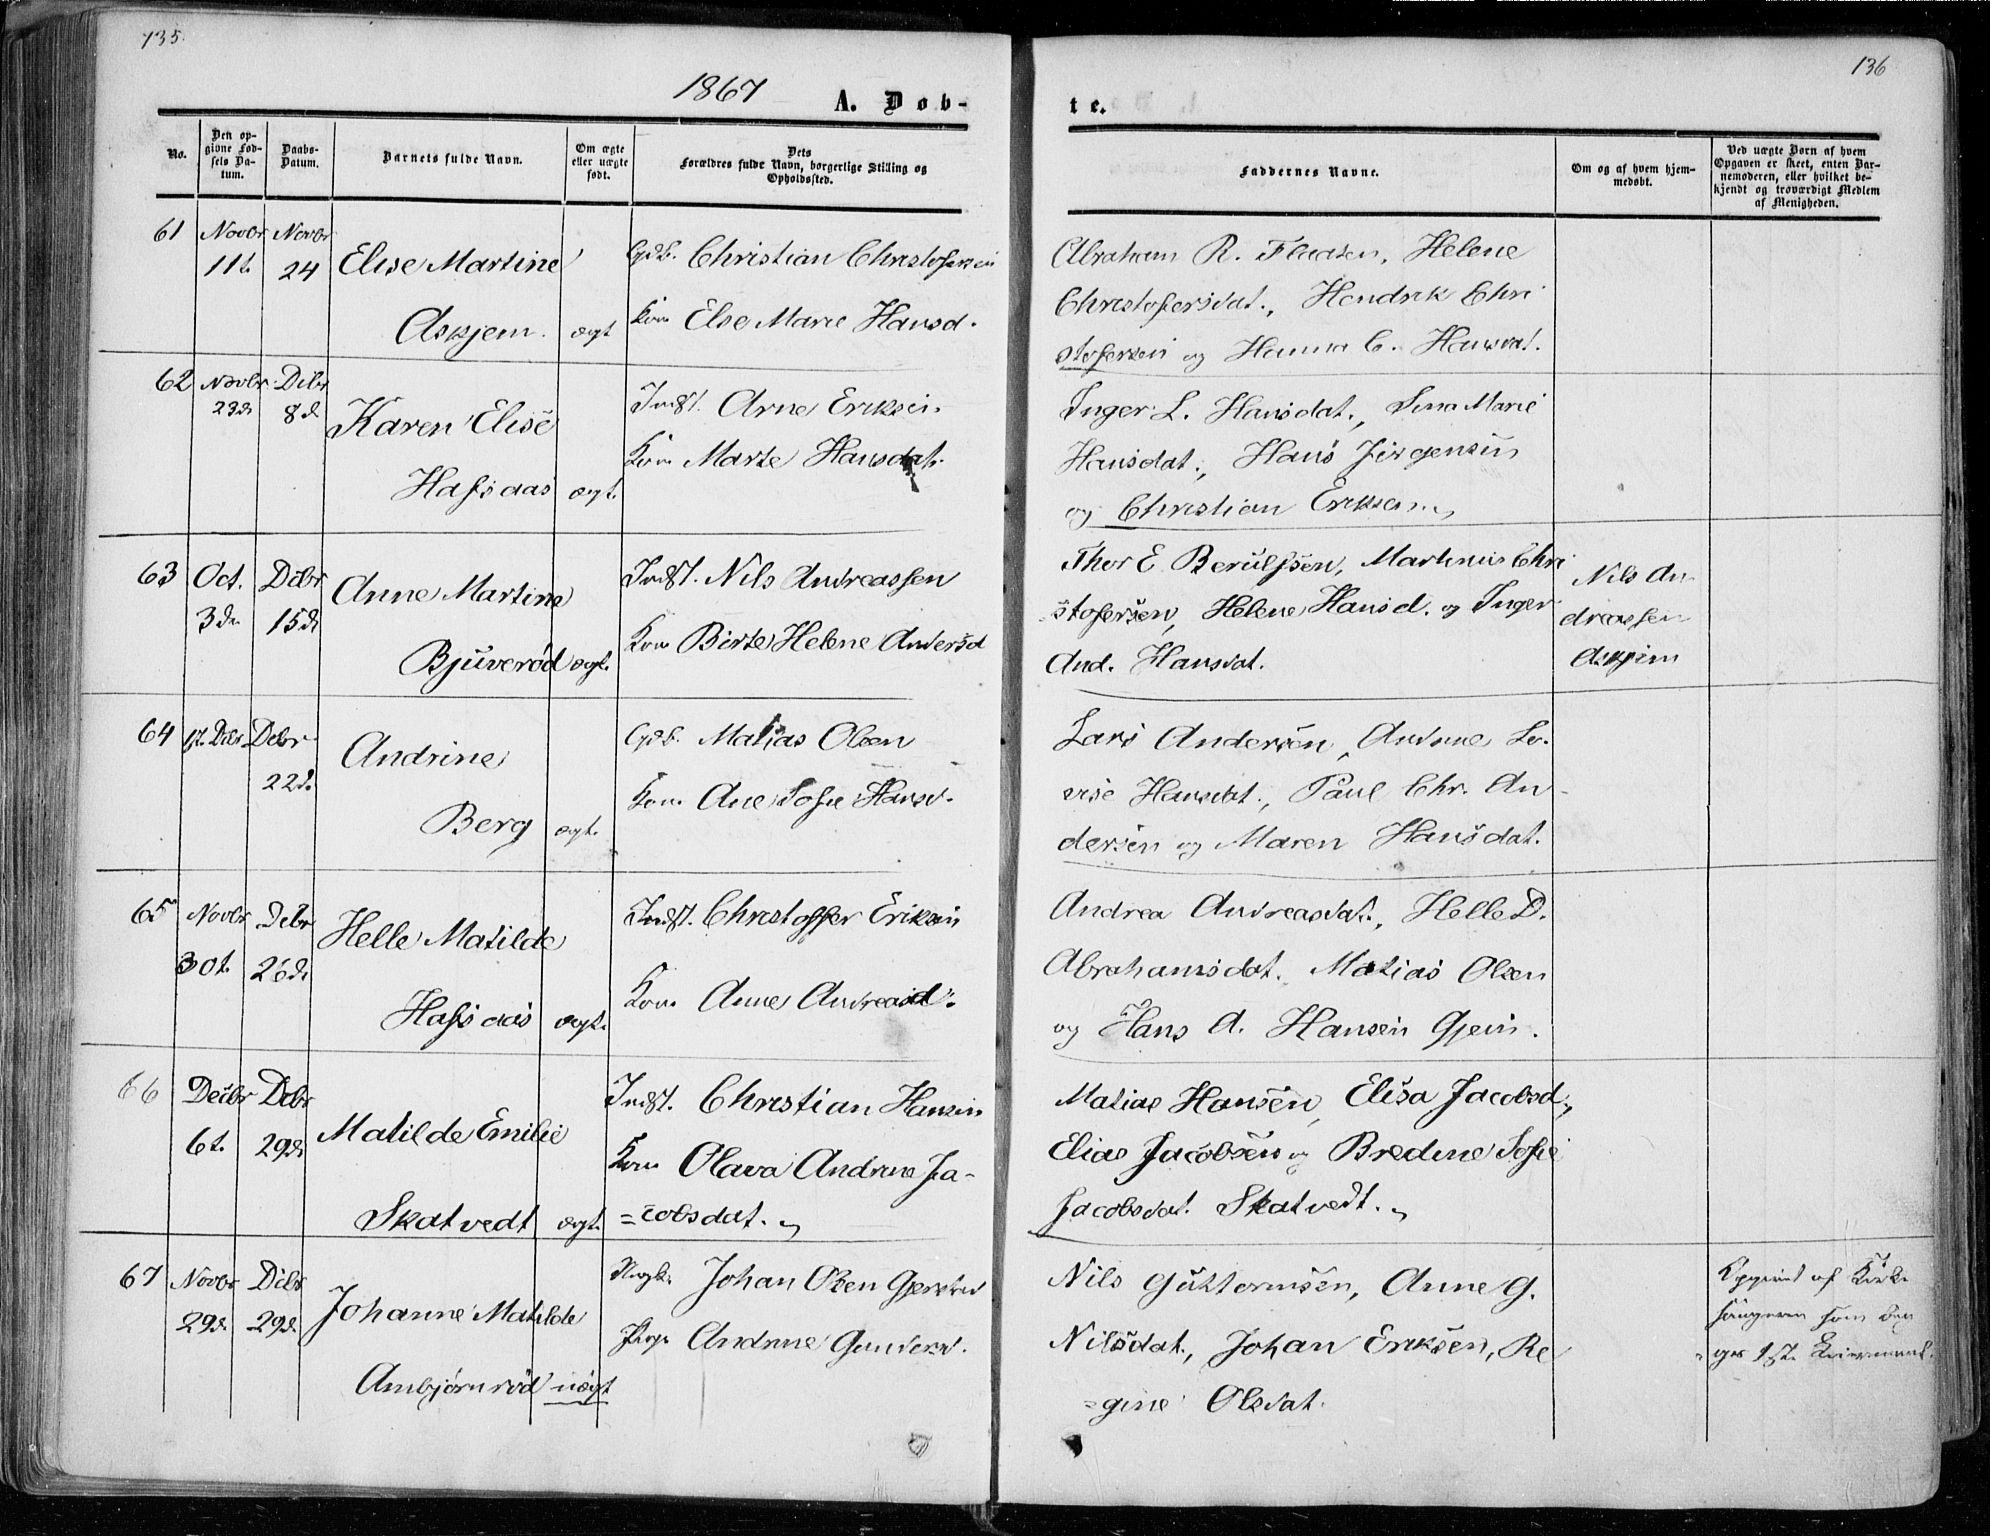 135.
136
1867
A. Døb-
te.
No.
Den op-
givne Fød-
sels Da-
tum.
Daabs-
Datum.
Barnets fulde Navn.
Om ægte
eller uægte
født.
Dets
Forældres fulde Navn, borgerlige Stilling og
Opholdssted.
Faddernes Navne.
Om og af hvem hjem-
medøbt.
Ved uægte Børn af hvem
Opgaven er skeet, enten Bar-
nemoderen, eller hvilket be-
kjendt og troværdigt Medlem
af Menigheden.
61 Novbr 11t. Novbr 24
Elise Martine
Askjem. ægt
Gdb. Christian Christofersen
Kon Else Marie Hansd.
Abraham R. Flaasen, Helene
Christofersdat., Hendrik Chri
stofersen og Hanna C. Hansdat.
62 Novbr 23d Debr 8d
Karen Elise
Hafsaas ægt.
Indst. Arne Eriksen.
Kon Marte Hansdat.
Inger L. Hansdat., Sina Marie
Hansdat., Hans Jørgensen
og Christian Eriksen
63 Oct. 3d Debr 15d
Anne Martine
Bjuverød ægt.
Indst. Nils Andreassen
Kon Birte Helene Andersd
Thor E Berulfsen, Martinus Chri
stofersen, Helene Hansd. og Inger
And. Hansdat.
Nils An
dreassen
Askjem
64 Debr Debr 22d.
Andrine
Berg ægt.
Gdb. Matias Olsen
Kon. Ane Sofie Hansd.
Lars Andersen, Andrine Lo-
vise Hansdat., Paul Chr. An-
dersen og Maren Hansdat.
65 Novbr 30t. Debr 26d.
Helle Matilde
Hafsaas ægt.
Indst. Christoffer Eriksen
Kon Anne Andreasd.
Andrea Andreasdat., Helle D.
Abrahamsdat. Matias Olsen
og Hans A. Hansen Gjein.
66 Decbr 6t. Debr 29d.
Matilde Emilie
Skatvedt ægt.
Indst. Christian Hansen
Kon Olava Andrine Ja-
=cobsdat.
Matias Hansen, Elisa Jacobsd.,
Elias Jacobsen og Bredine Sofie
Jacobsdat. Skatvedt.
67 Novbr 29d. Debr 29d.
Johanne Matilde
Ambjørnrød uægt
Ungk. Johan Olsen
Pige Andrine Gundersd.
Nils Guttormsen, Anne G.
Nilsdat., Johan Eriksen, Re
=gine Olsdat.
Opgivet af Kirke
sangeren som